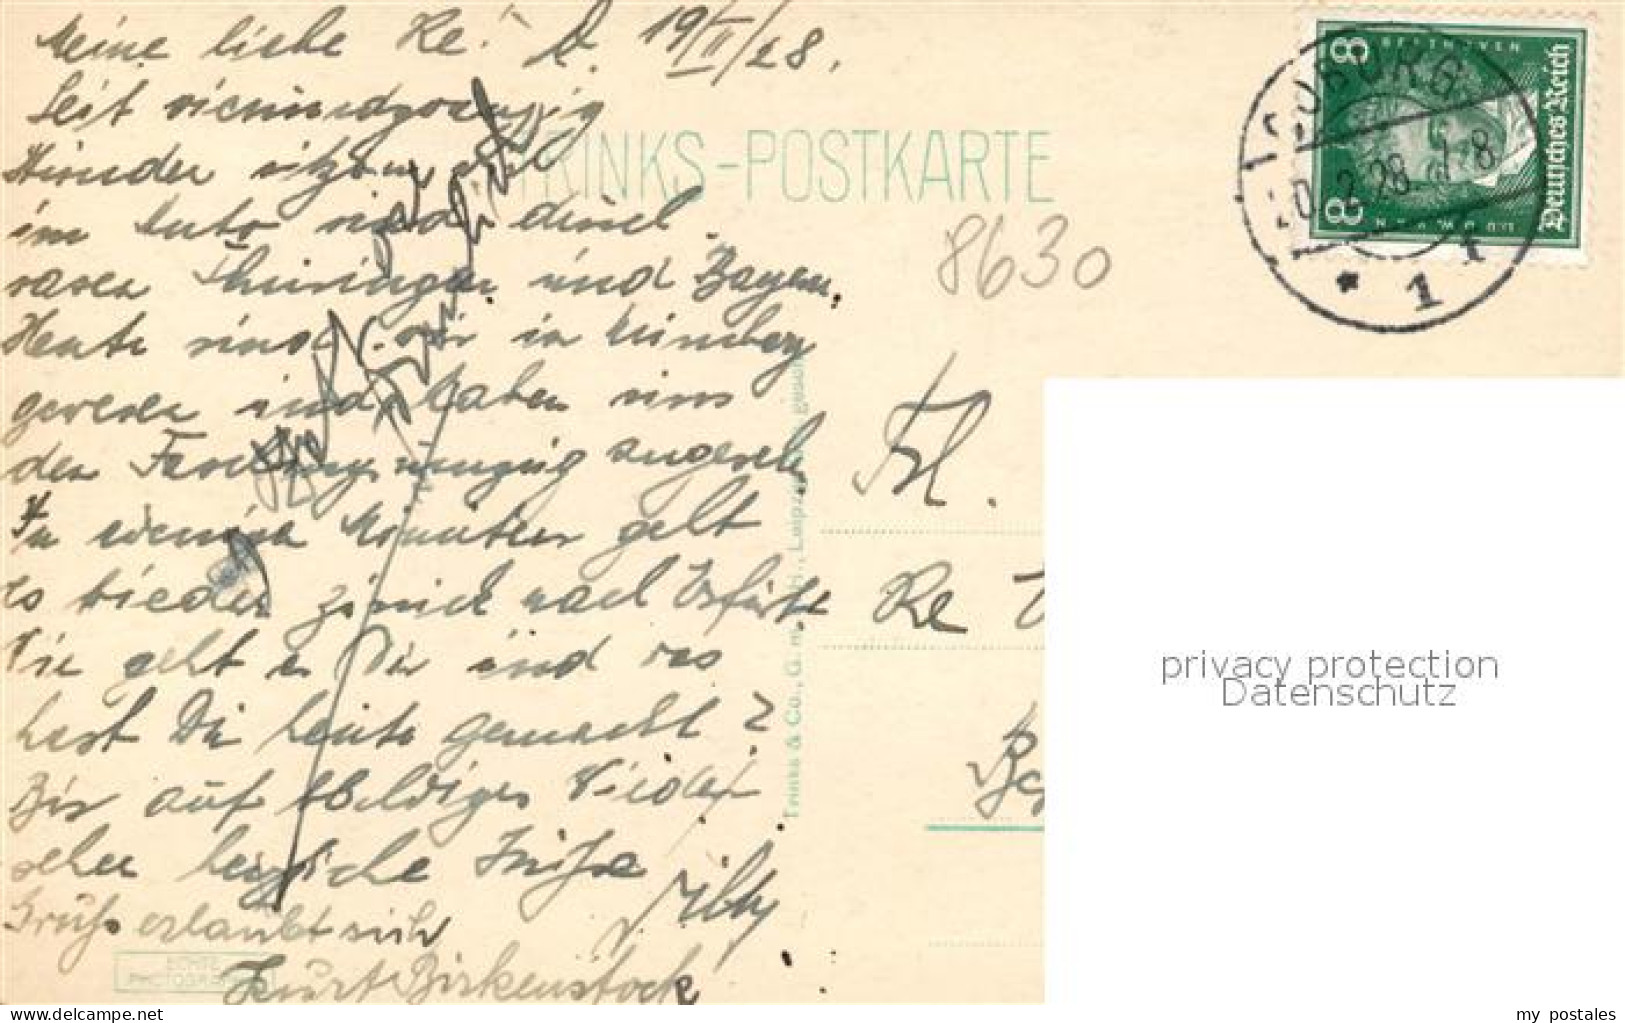 Meine liebe Re! D. 19/II/28.
Seit vierundzwanzig
Stunden sitzen wir
im Auto und durch
rasen Thüringen und Bayern.
Heute sind wir in Nürnberg
gewesen und haben uns
den Faschingsumzug angeseh
In wenigen Minuten geht
es wieder zurück nach Erfurt
Wie geht es Dir und was
hast Du heute gemacht?
Bis auf baldiges Wieder
sehen herzliche Grüße
Willy
Gruß erlaubt sich
Kurt Birkenstock
TRINKS-POSTKARTE
8630
Trinks & Co., G. m. b. H., Leipzig
Frl.
Re
COBURG
20.2.28.7-8
* 1
BEETHOVEN
8
8
Deutsches Reich
LUDWIG VAN
privacy protection
Datenschutz
ECHTE
PHOTOGRAPHIE
www.delcampe.net
my_postales